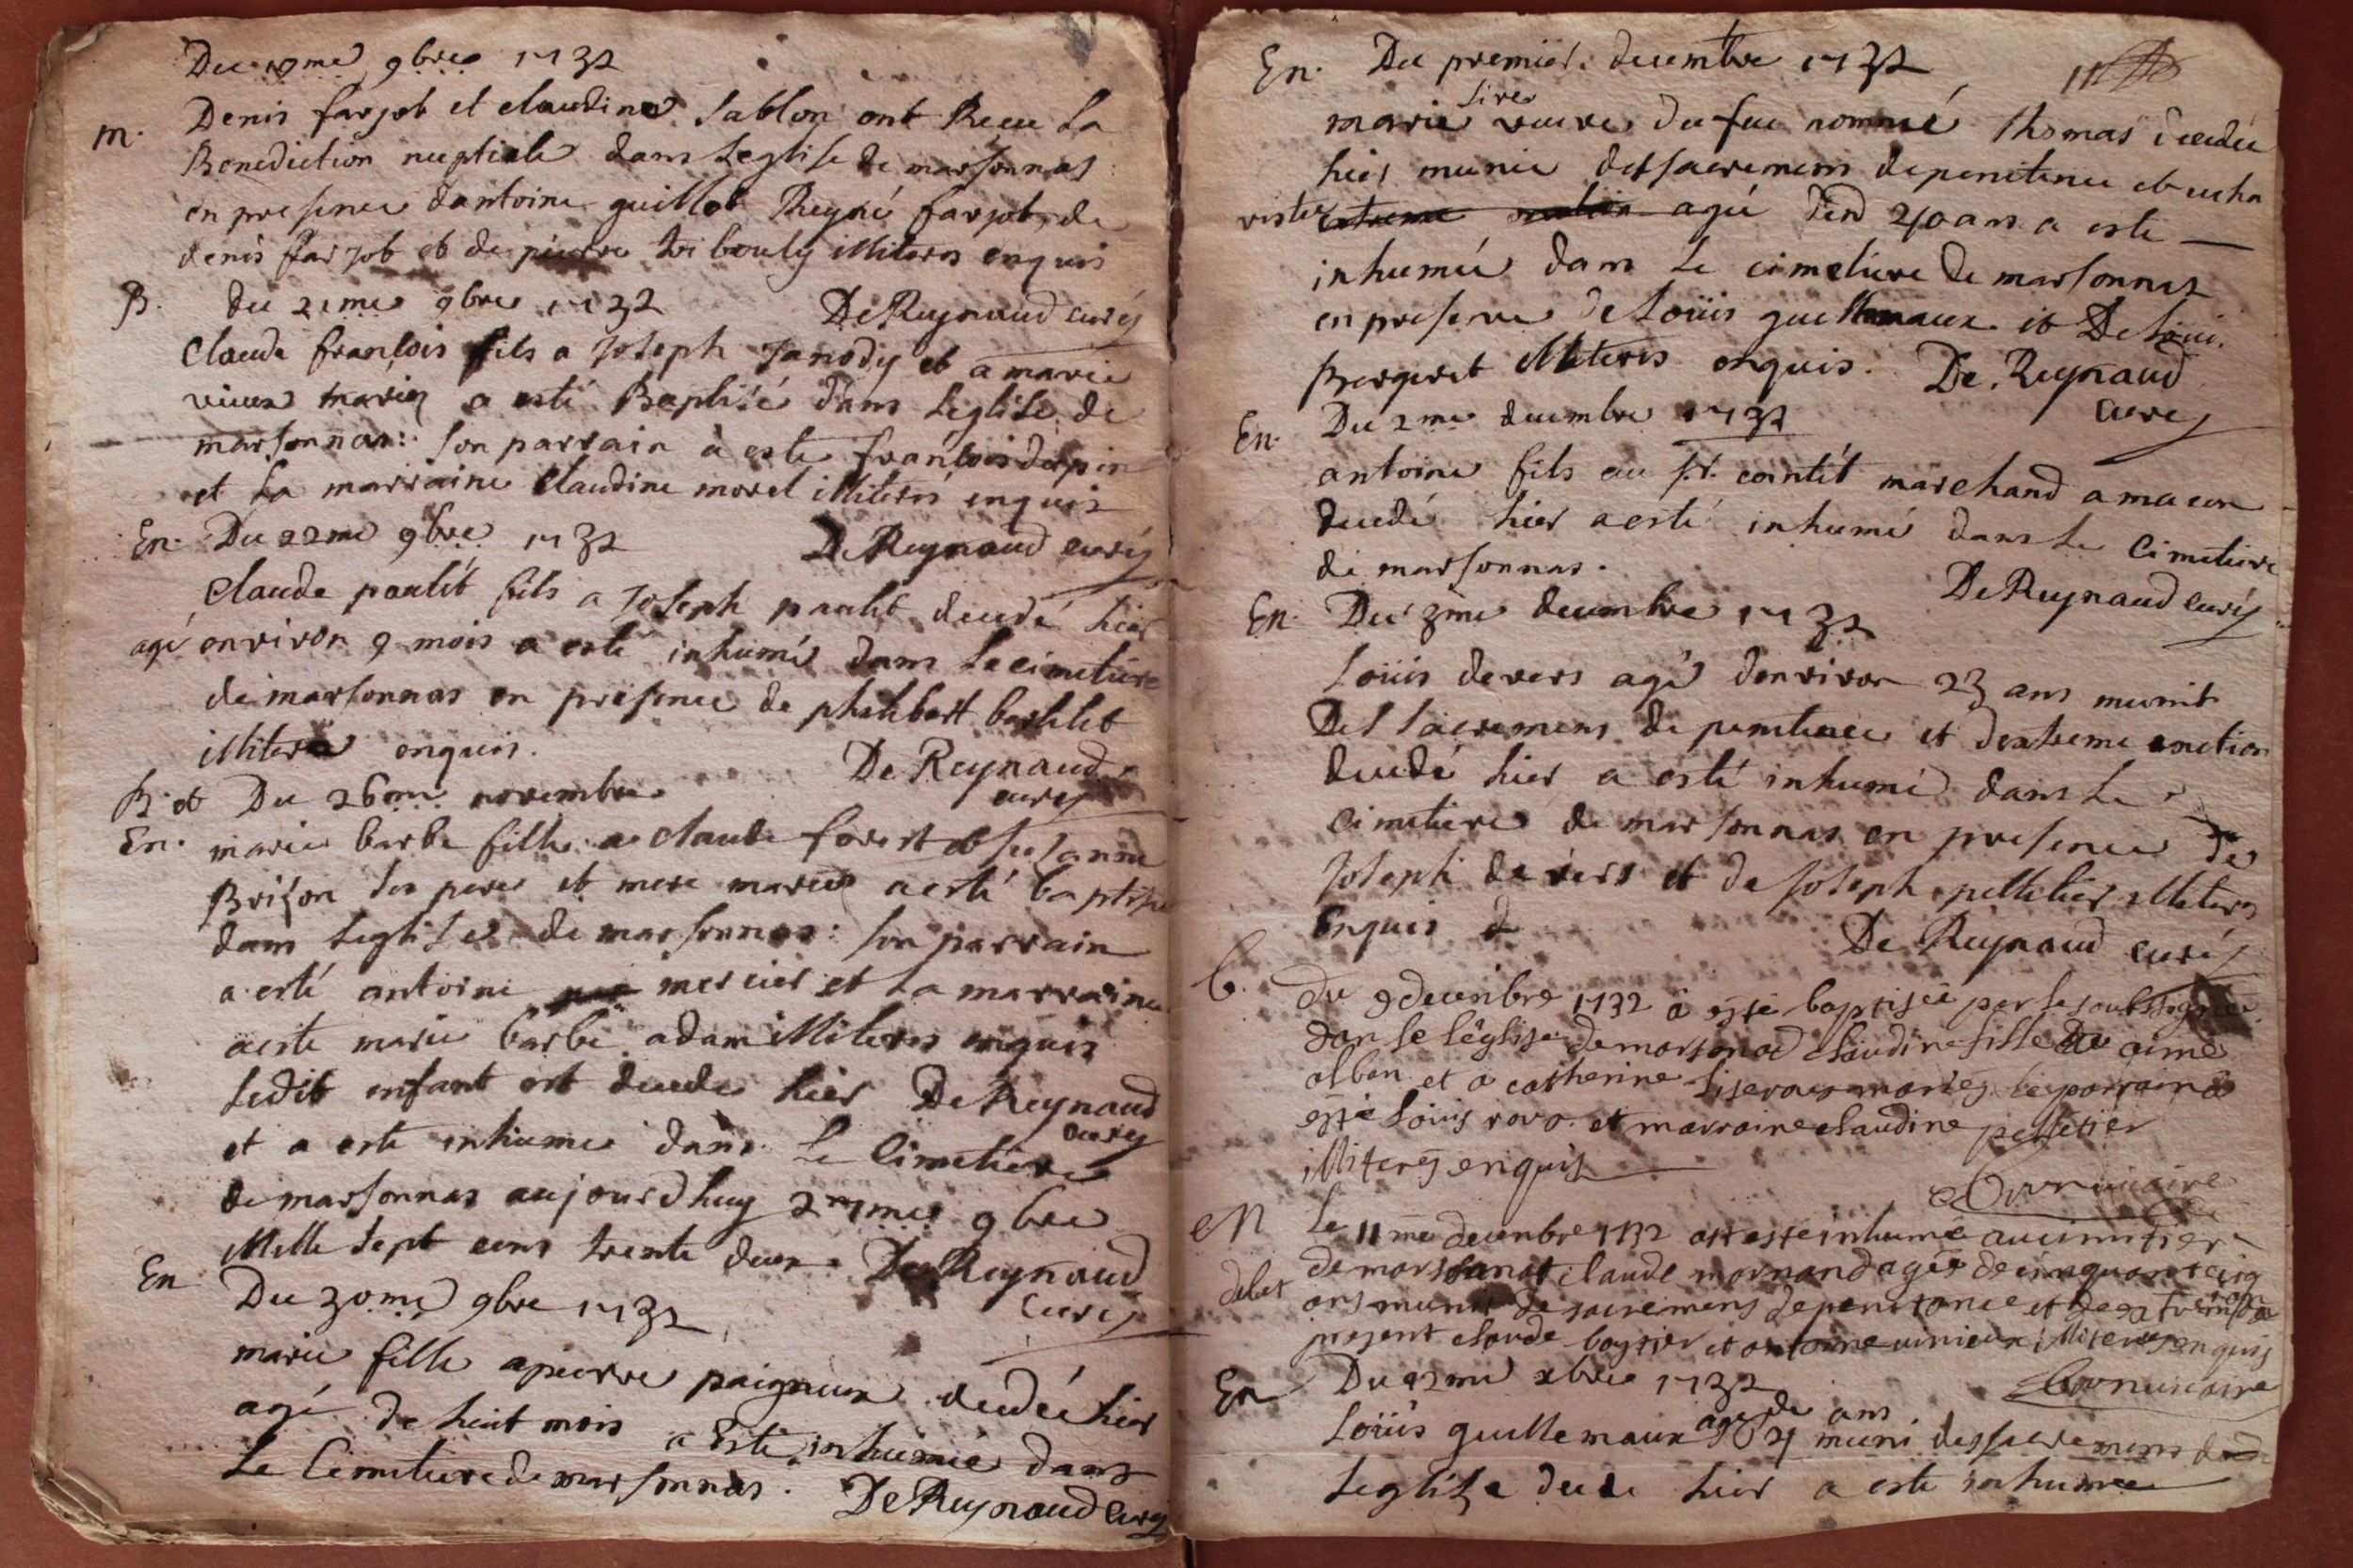 Du 19me 9bre 1732
m. Denis farjob et claudine Sablon ont Receu La
Benediction nuptiale dans Leglise de marsonnas
en presence dantoine guillot farjob de
denis farjob et de pierre tribouly illiteres enquis
B. du 21me 9bre 1732 De Reynaud curéz
Claude franĉois fils a Joseph Janody et a marie
vieux mariez a esté Baptisé dans Leglise de
marsonnas: son parrain a esté franĉois dupin
et La marraine Claudine morel illiteres enquis
En. Du 22me 9bre 1732 De Reynaud curéz
Claude paulet fils a Joseph paulet decedé hier
agé environ 9 mois a esté inhumé dans Le cimetiere
de marsonnas en presence de philibert berthelet
illitere enquis. De Reynaud
B. et Du 26me novembre curéz
En. marie barbe fille a claude forest et susanne
Brison ses pere et mere mariez a esté baptisée
dans Leglise de marsonnas: son parrain
a esté antoine mercier et La marraine
a esté marie barbe adam illiteres enquis
Ledit enfant est decedé hier De Reynaud
curéz
et a esté inhumée dans Le Cimetiere
de marsonnas aujourdhuy 27me 9bre
Mille sept cens trente deux. De Reynaud
En Du 30me 9bre 1732 Curéz
marie fille a pierre paigneux decedée hier
agé de huit mois a esté inhumée dans
Le Cimetiere de marsonnas. De Reynaud Curéz
En. Du premier decembre 1732
marie sive veuve du feu nommé Thomas decedée
hier munie des sacremens de penitence et eucha
ristie agée den 40 ans a esté
inhumée dans Le cimetiere de marsonnas
en presence de Loüis guillemaux et De Loüi
Bergeret illiteres enquis. De Reynaud
En. Du 2me decembre 1732 Curéz
antoine fils au Sr. cointet marchand a macon
decedé hier a esté inhumé dans Le Cimetiere
de marsonnas.
De Reynaud curéz
En. Du 3me decembre 1732
Loüis devers agé denviron 23 ans munit
Des sacremens de penitence et dextreme onction
decedé hier a esté inhumé dans Le
Cimetiere de marsonnas en presence de
Joseph de vers et de Joseph pelletier illiteres
Enquis
De Reynaud curéz
b. du 9 decenbre 1732 a esté baptiseé par le soubsigné
dan le léglise de marsonad claudine fille de aimé
alban et a catherine mariez le parrain a
esté Louis et marraine claudine pelletier
illiterez enquis
vicaire
en Le 11me decenbre 1732 ast este inhumé au cimitier
de marsonat claude mornand agée de cinquante cinq
ans munit de sacremens de penitance et de extremson
present claude boysier et antoine vinieux illiterez enquis
En Du 12me xbre 1732 vicaire
Loüis guillemaux agé de ans muni des sacremens de
Leglise decedé hier a esté inhumé